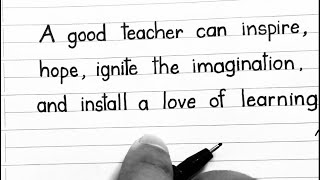 A good teacher can inspire,
hope, ignite the imagination,
and install a love of learning